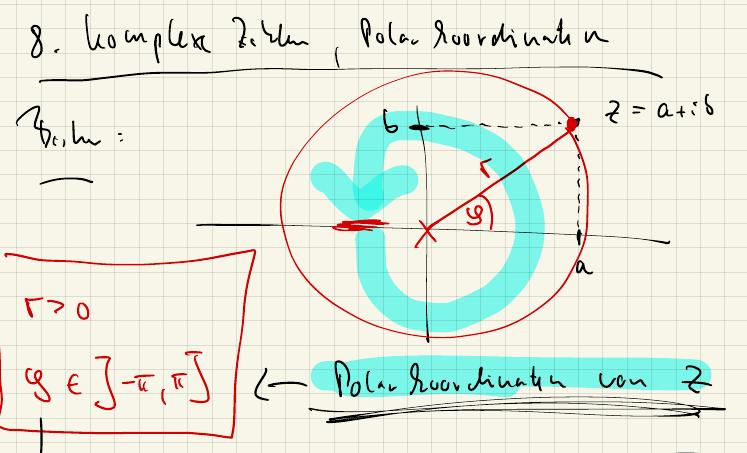 8. Komplexe Zahlen, Polarkoordinaten
z = a+ib
b
r
φ
a
r > 0
φ ∈ ]-π, π]
← Polarkoordinaten von z